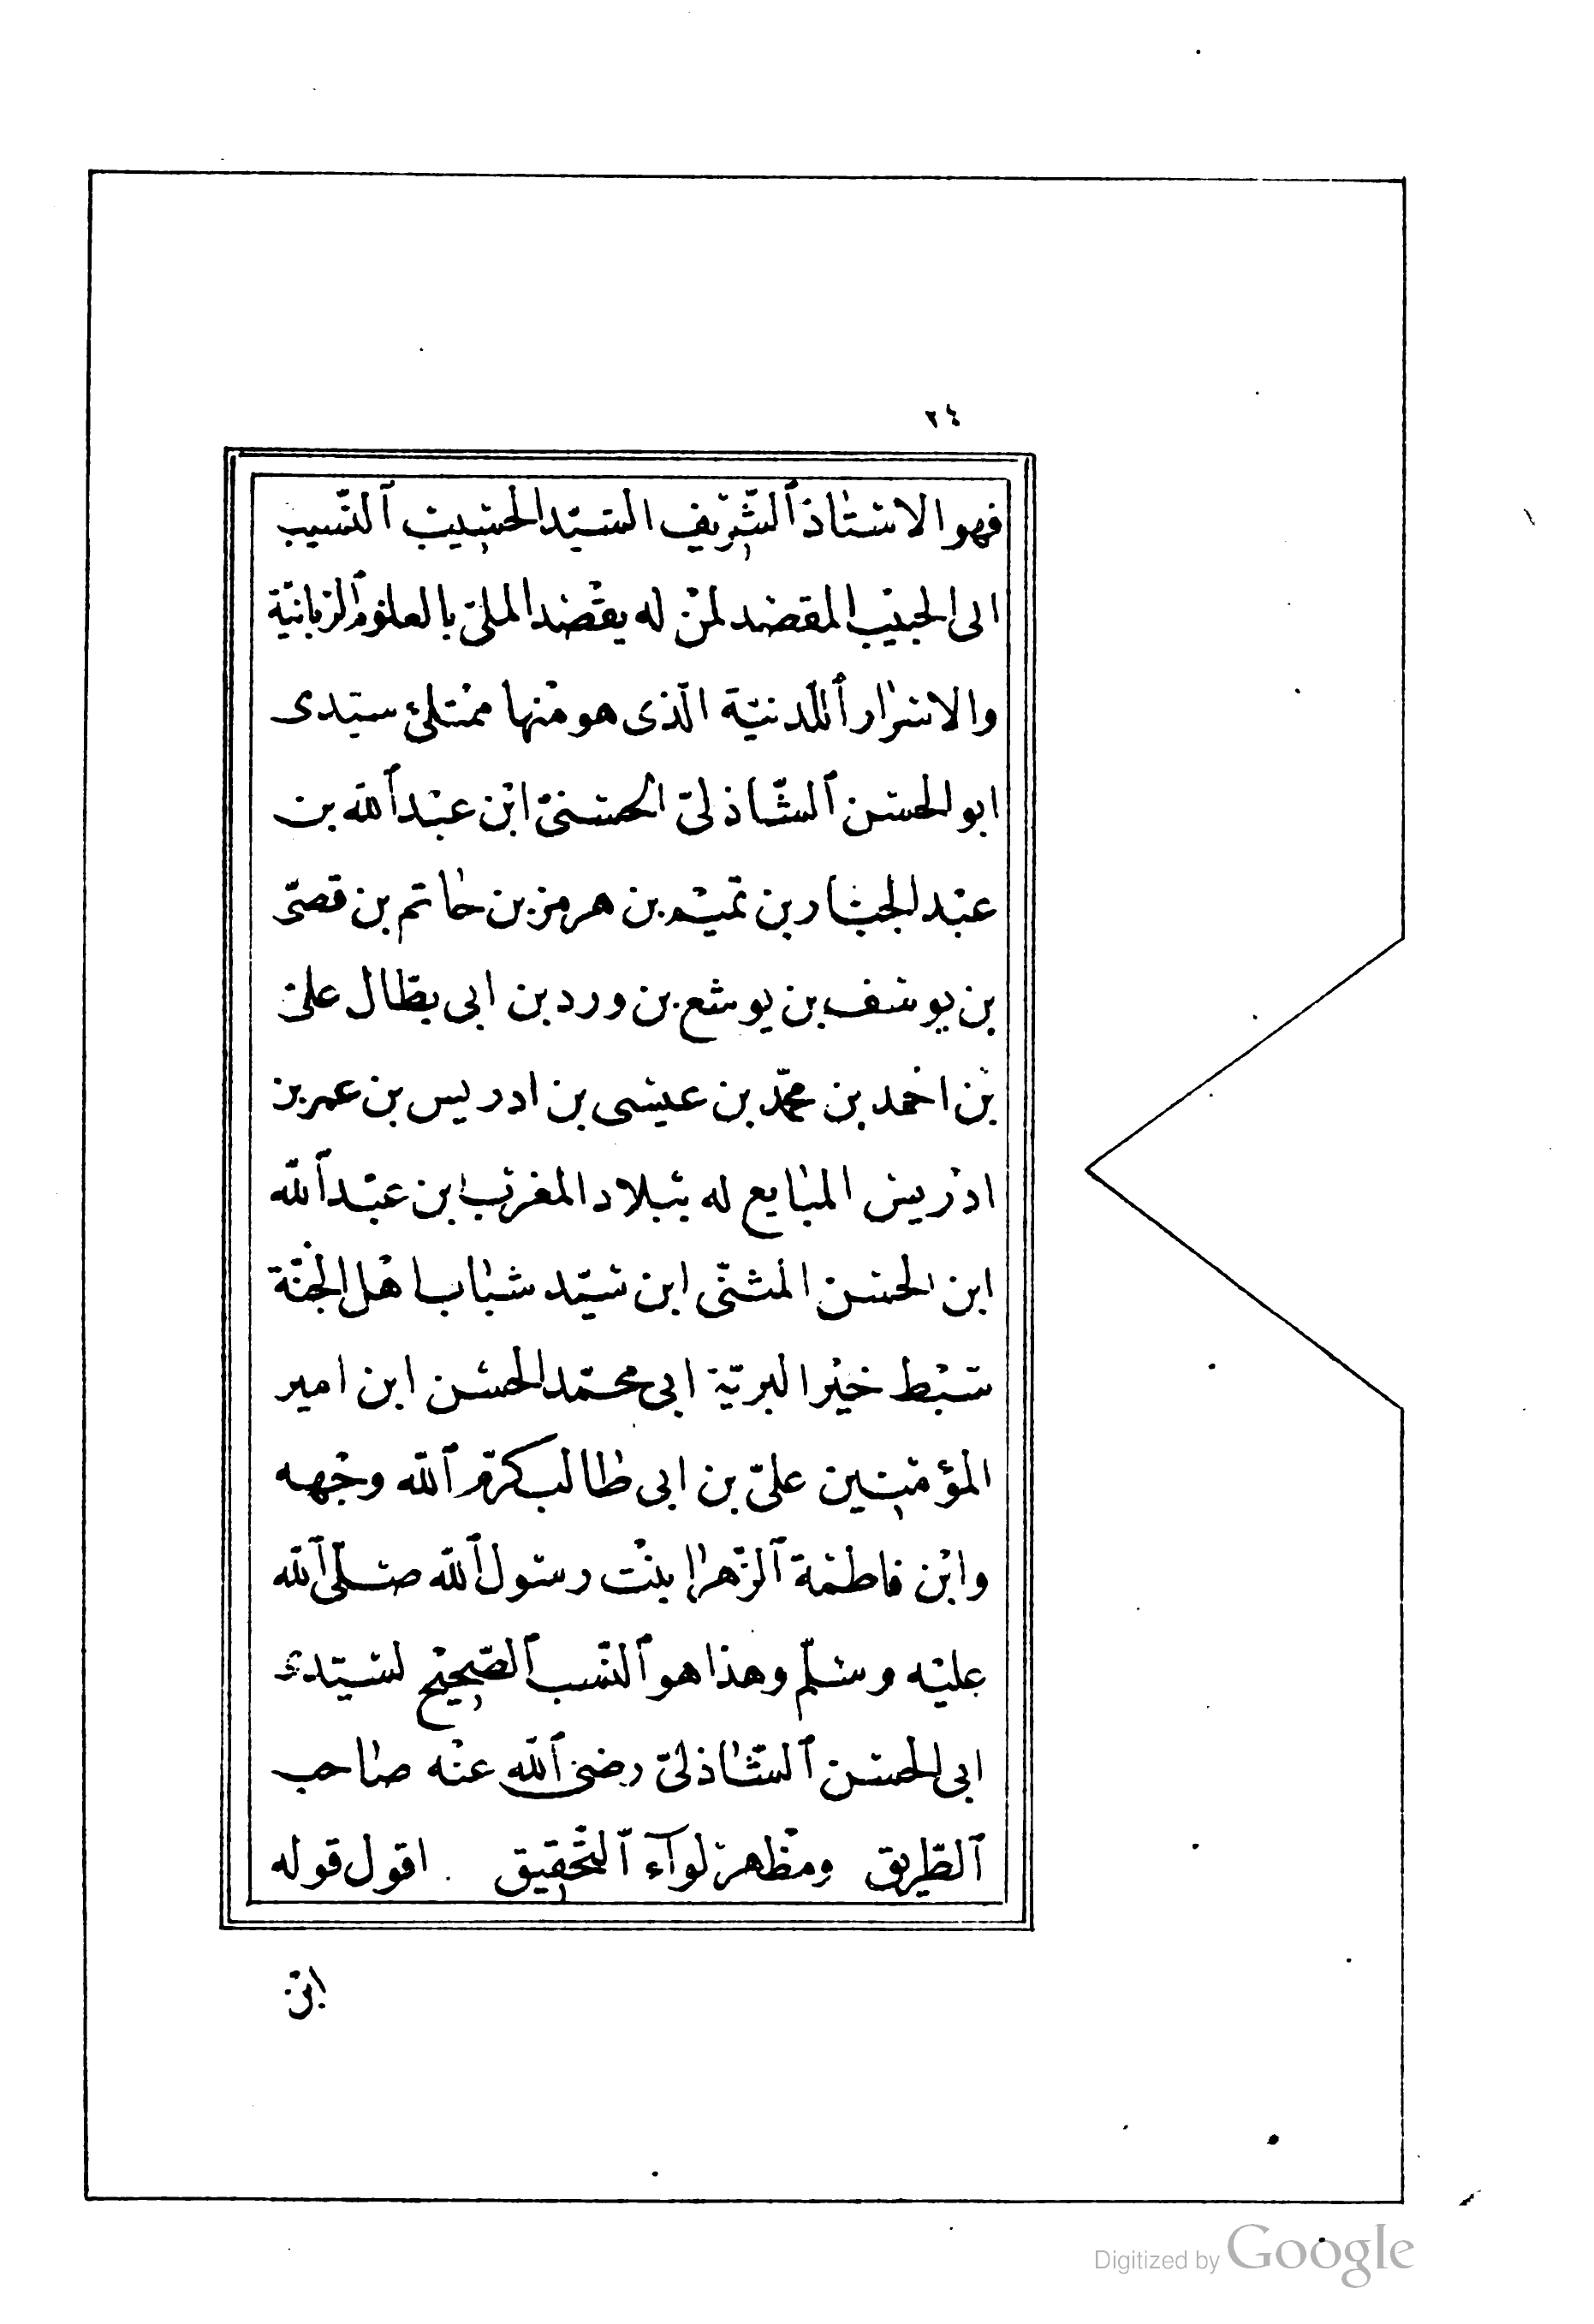 ٢٤
فهو الاستاذ الشريف السيد الحسيب النسيب
الى الحبيب المقصد لمن له يقصد الملئ بالعلوم الربانية
والاسرار اللدنية الذى هو منها ممتلئ سيدى
ابو الحسن الشاذلى الحسنى ابن عبد الله بن
عبد الجبار بن تميم بن هرمز بن حاتم بن قصى
بن يوسف بن يوشع بن ورد بن ابى بطال على
بن احمد بن محمد بن عيسى بن ادريس بن عمر بن
ادريس المبايع له ببلاد المغرب ابن عبد الله
ابن الحسن المثنى ابن سيد شباب اهل الجنة
سبط خير البرية ابى محمد الحسن ابن امير
المؤمنين على بن ابى طالب كرم الله وجهه
وابن فاطمة الزهرا بنت رسول الله صلى الله
عليه وسلم وهذا هو النسب الصحيح لسيدى
ابى الحسن الشاذلى رضى الله عنه صاحب
الطريق ومظهر لوآء التحقيق اقول قوله
ابن
Digitized by Google